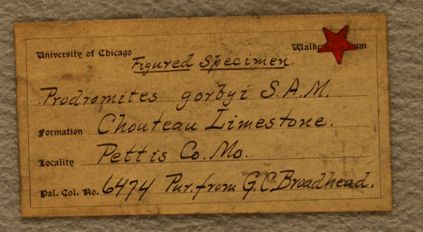 University of Chicago Walker um
Figured Specimen.
Prodromites gorbyi S.A.M.
Formation Chouteau Limestone.
Locality Pettis Co. Mo.
Pal. Col. No. 6474 Pur. from G.C. Broadhead.